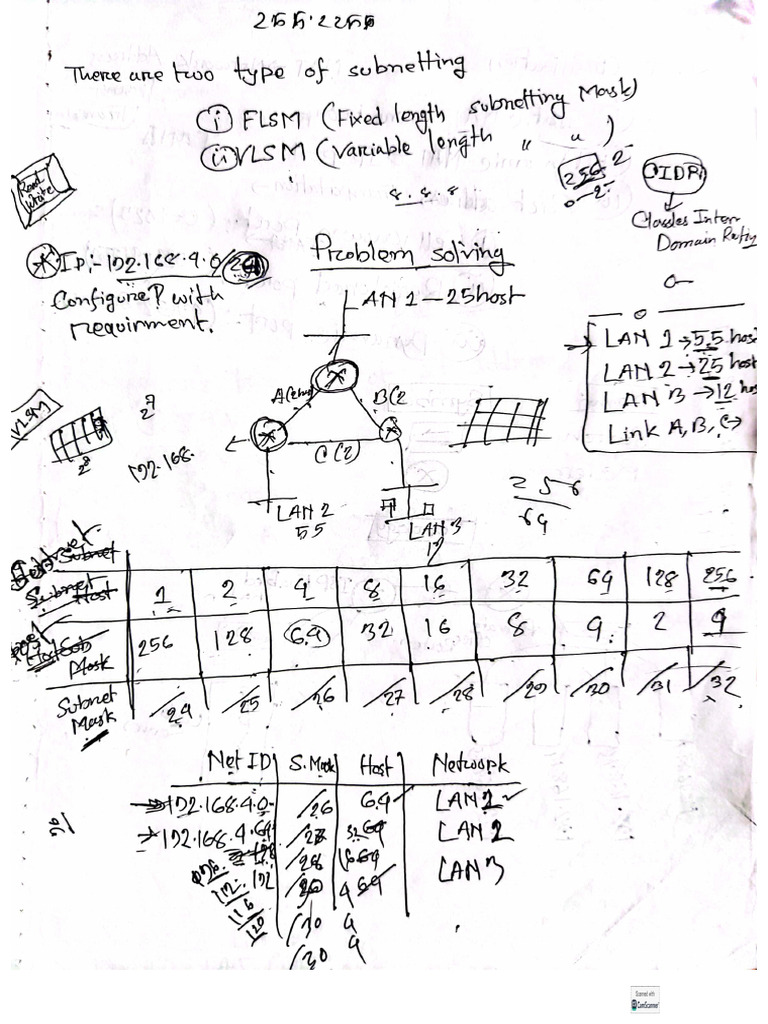 255.2255
There are two type of subnetting
(i) FLSM (Fixed length subnetting Mask)
(ii) VLSM (Variable length " " )
Read
Write
8.8.8
256-2
0-2
CIDR
Classles Inter
Domain
ID:- 192.168.4.0/24
Configure with
requirment.
Problem solving
LAN 1 - 25 host
LAN 1 → 55 host
LAN 2 → 25 host
LAN 3 → 12 hos
Link A, B, C →
A(2
B(2
C(2)
VLSM
192.168.
LAN 2
55
LAN 3
12
256
64
Subnet
Host
1 2 4 8 16 32 64 128 256
Mask
256 128 64 32 16 8 4 2 1
Subnet
Mask
/24 /25 /26 /27 /28 /29 /30 /31 /32
Net ID S. Mask Host Network
→192.168.4.0 /26 64 LAN 1
→192.168.4.64 /27 32 LAN 2
/28 16 LAN 3
/30 4
/30 4
/30 4
Scanned with
CamScanner